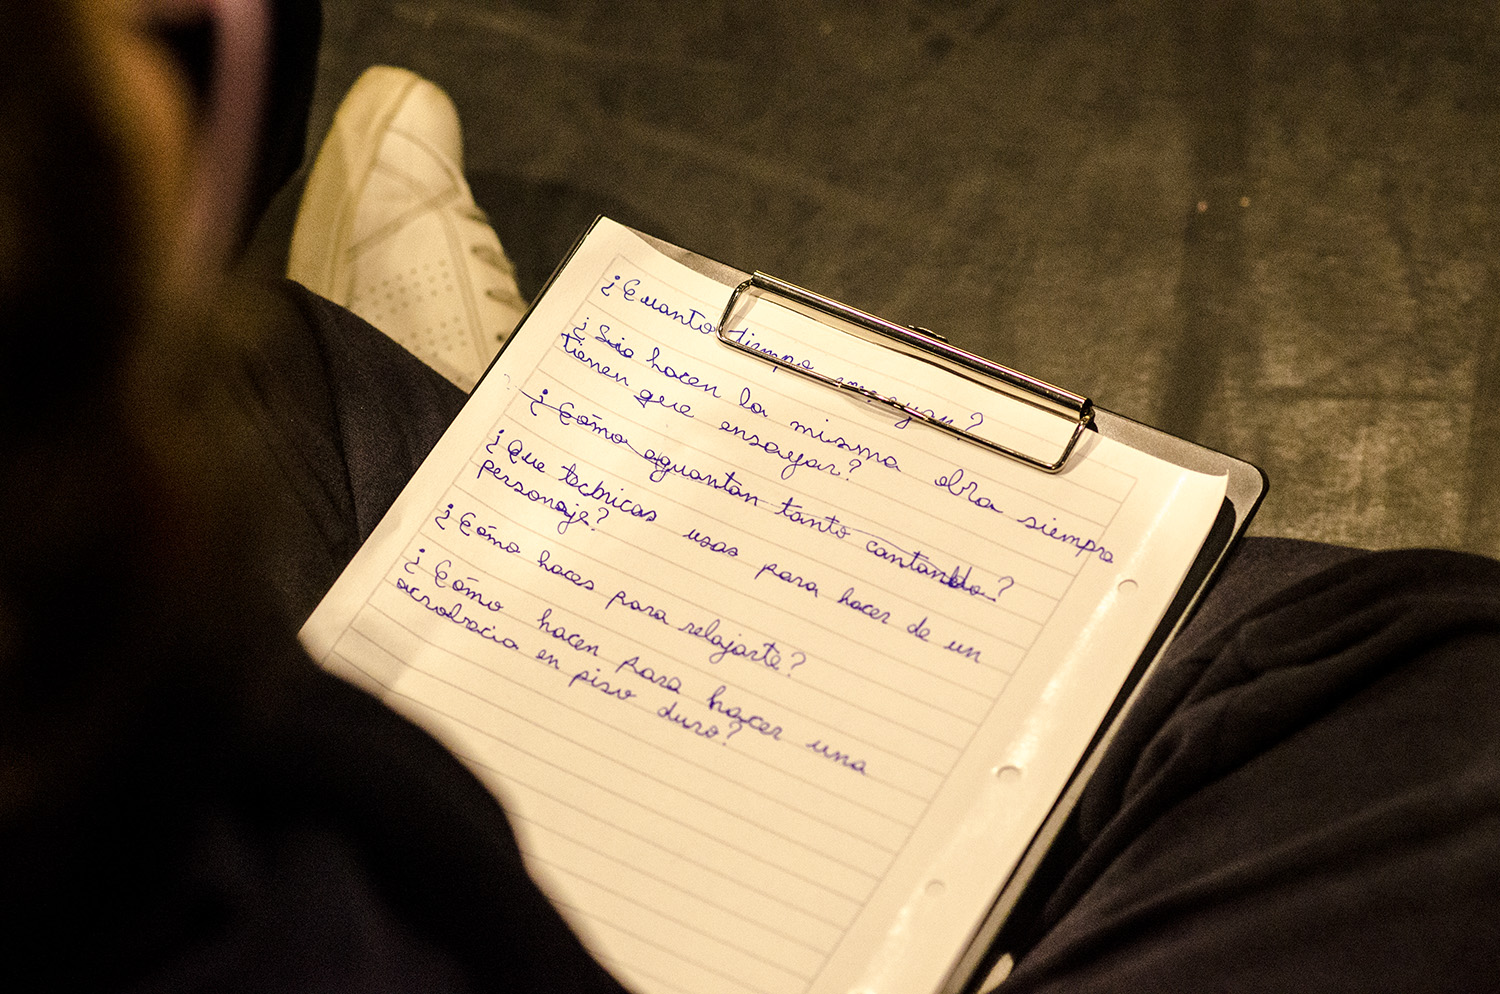 ¿Cuanto tiempo ensayan?
¿Sino hacen la misma obra siempre
tienen que ensayar?
¿Cómo aguantan tanto cantando?
¿Que tecnicas usas para hacer de un
personaje?
¿Cómo haces para relajarte?
¿Cómo hacen para hacer una
acrobacia en piso duro?